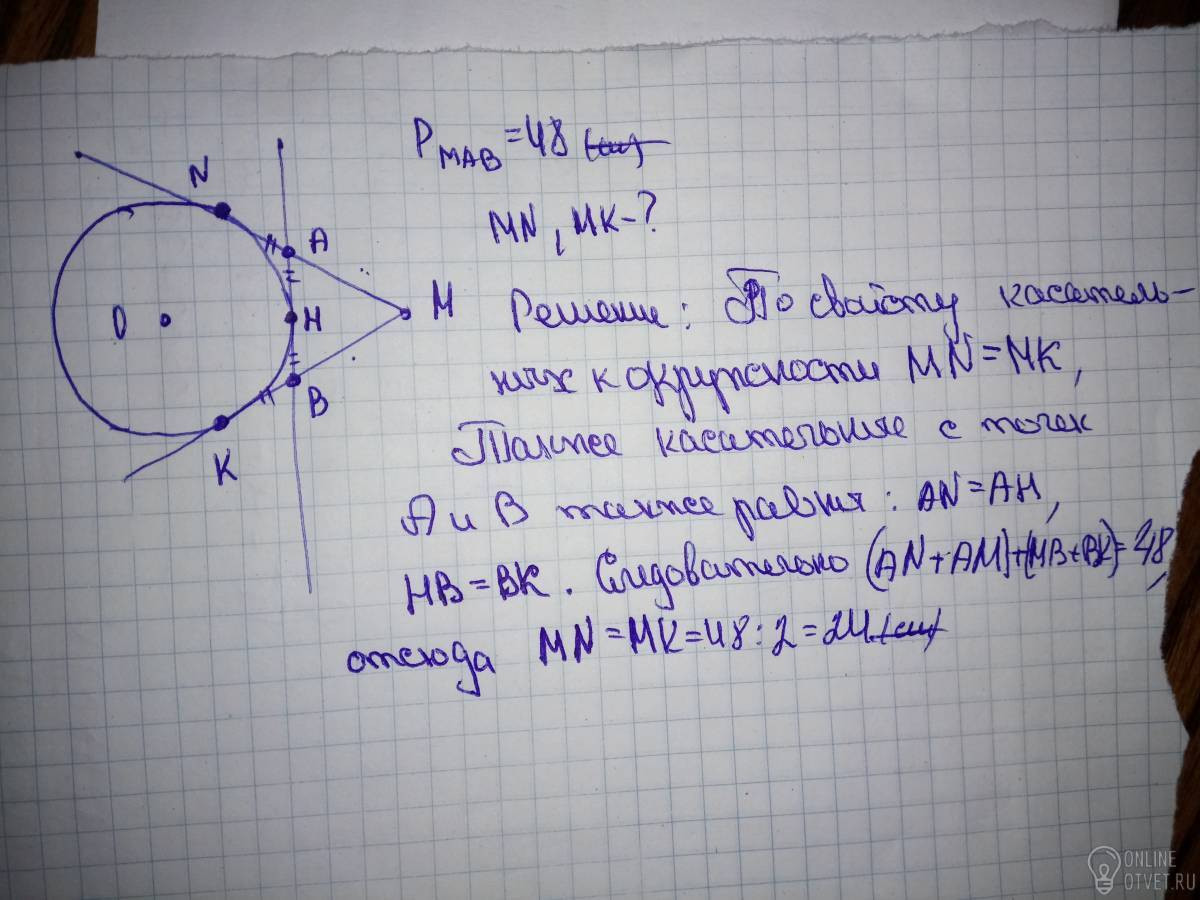 P MAB = 48 (см)
MN, MK - ?
Решение: По свойсту касатель-
них к окружности MN = MK,
Также касательние с точек
A и B также равния: AN = AH,
HB = BK. Следовательно (AN + AM) + (MB + BK) = 48,
отсюда MN = MK = 48 : 2 = 24 (см)
N
A
M
O
H
B
K
ONLINE
OTVET.RU